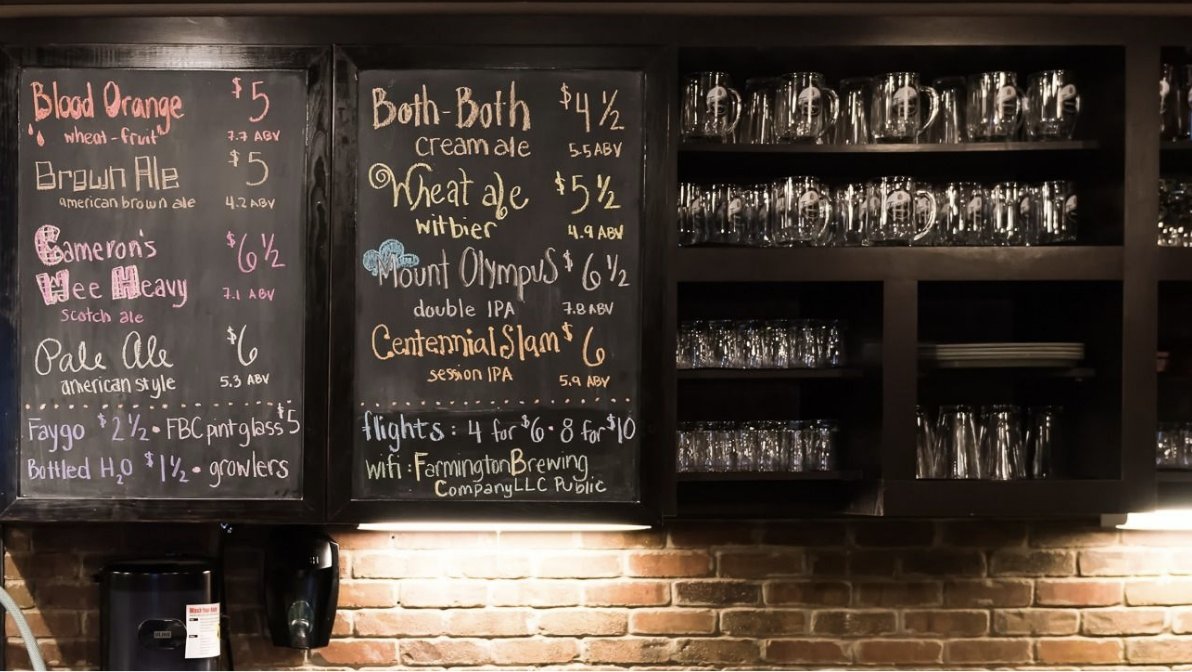 Blood Orange $5
wheat-fruit 7.7 ABV
Brown Ale $5
american brown ale 4.2 ABV
Cameron's
Wee Heavy $6 1/2
7.1 ABV
scotch ale
Pale Ale $6
american style 5.3 ABV
Faygo $2 1/2 • FBC pint glass $5
Bottled H2O $1 1/2 • growlers
Both-Both $4 1/2
cream ale 5.5 ABV
Wheat ale $5 1/2
witbier 4.9 ABV
Mount Olympus $6 1/2
double IPA 7.8 ABV
Centennial Slam $6
session IPA 5.9 ABV
flights: 4 for $6 • 8 for $10
wifi: Farmington Brewing
Company LLC Public